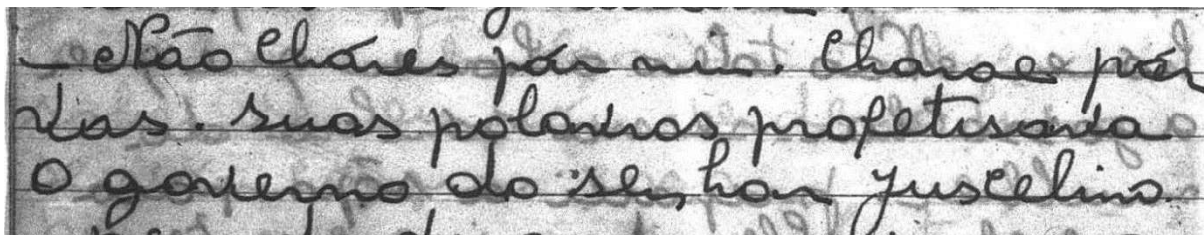 — Não Chóres pór mim. Chorae pór
Vós. suas palavras profetisava
O governo do senhor Juscelino.